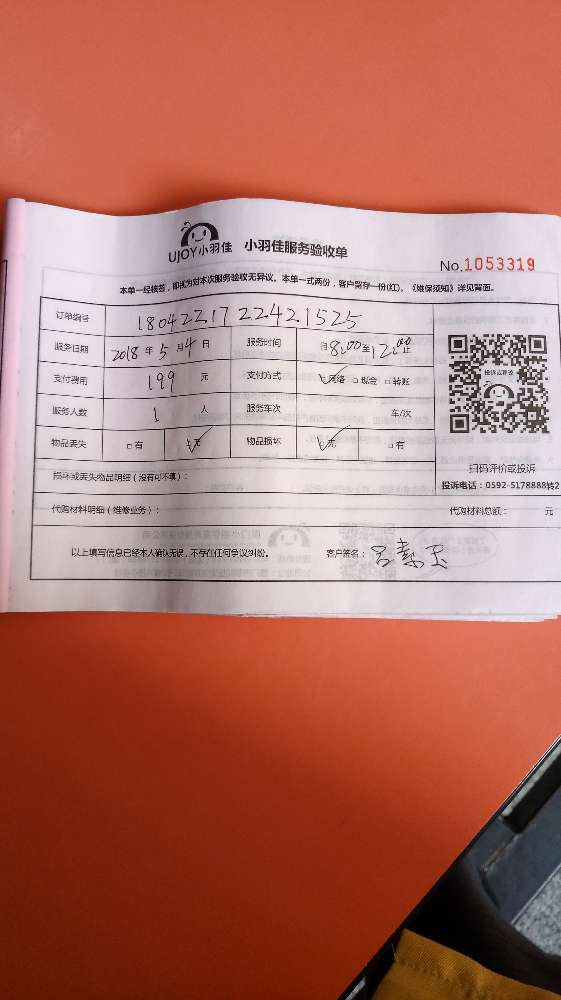 UJOY小羽佳 小羽佳服务验收单
No.1053319
本单一经核签，即视为对本次服务验收无异议。本单一式两份，客户留存一份(红)。《维保须知》详见背面。
订单编号 1804221722421525
服务日期 2018年5月4日 服务时间 自8:00至12:00止
支付费用 199 元 支付方式 ✓网络 □现金 □转账
投诉或建议
服务人数 1 人 服务车次 车/次
物品丢失 □有 ✓无 物品损坏 ✓无 □有
扫码评价或投诉
损坏或丢失物品明细（没有可不填）：
投诉电话：0592-5178888转2
代购材料明细（维修业务）： 代购材料总额： 元
以上填写信息已经本人确认无误，不存在任何争议纠纷。 客户签名：吕素玉